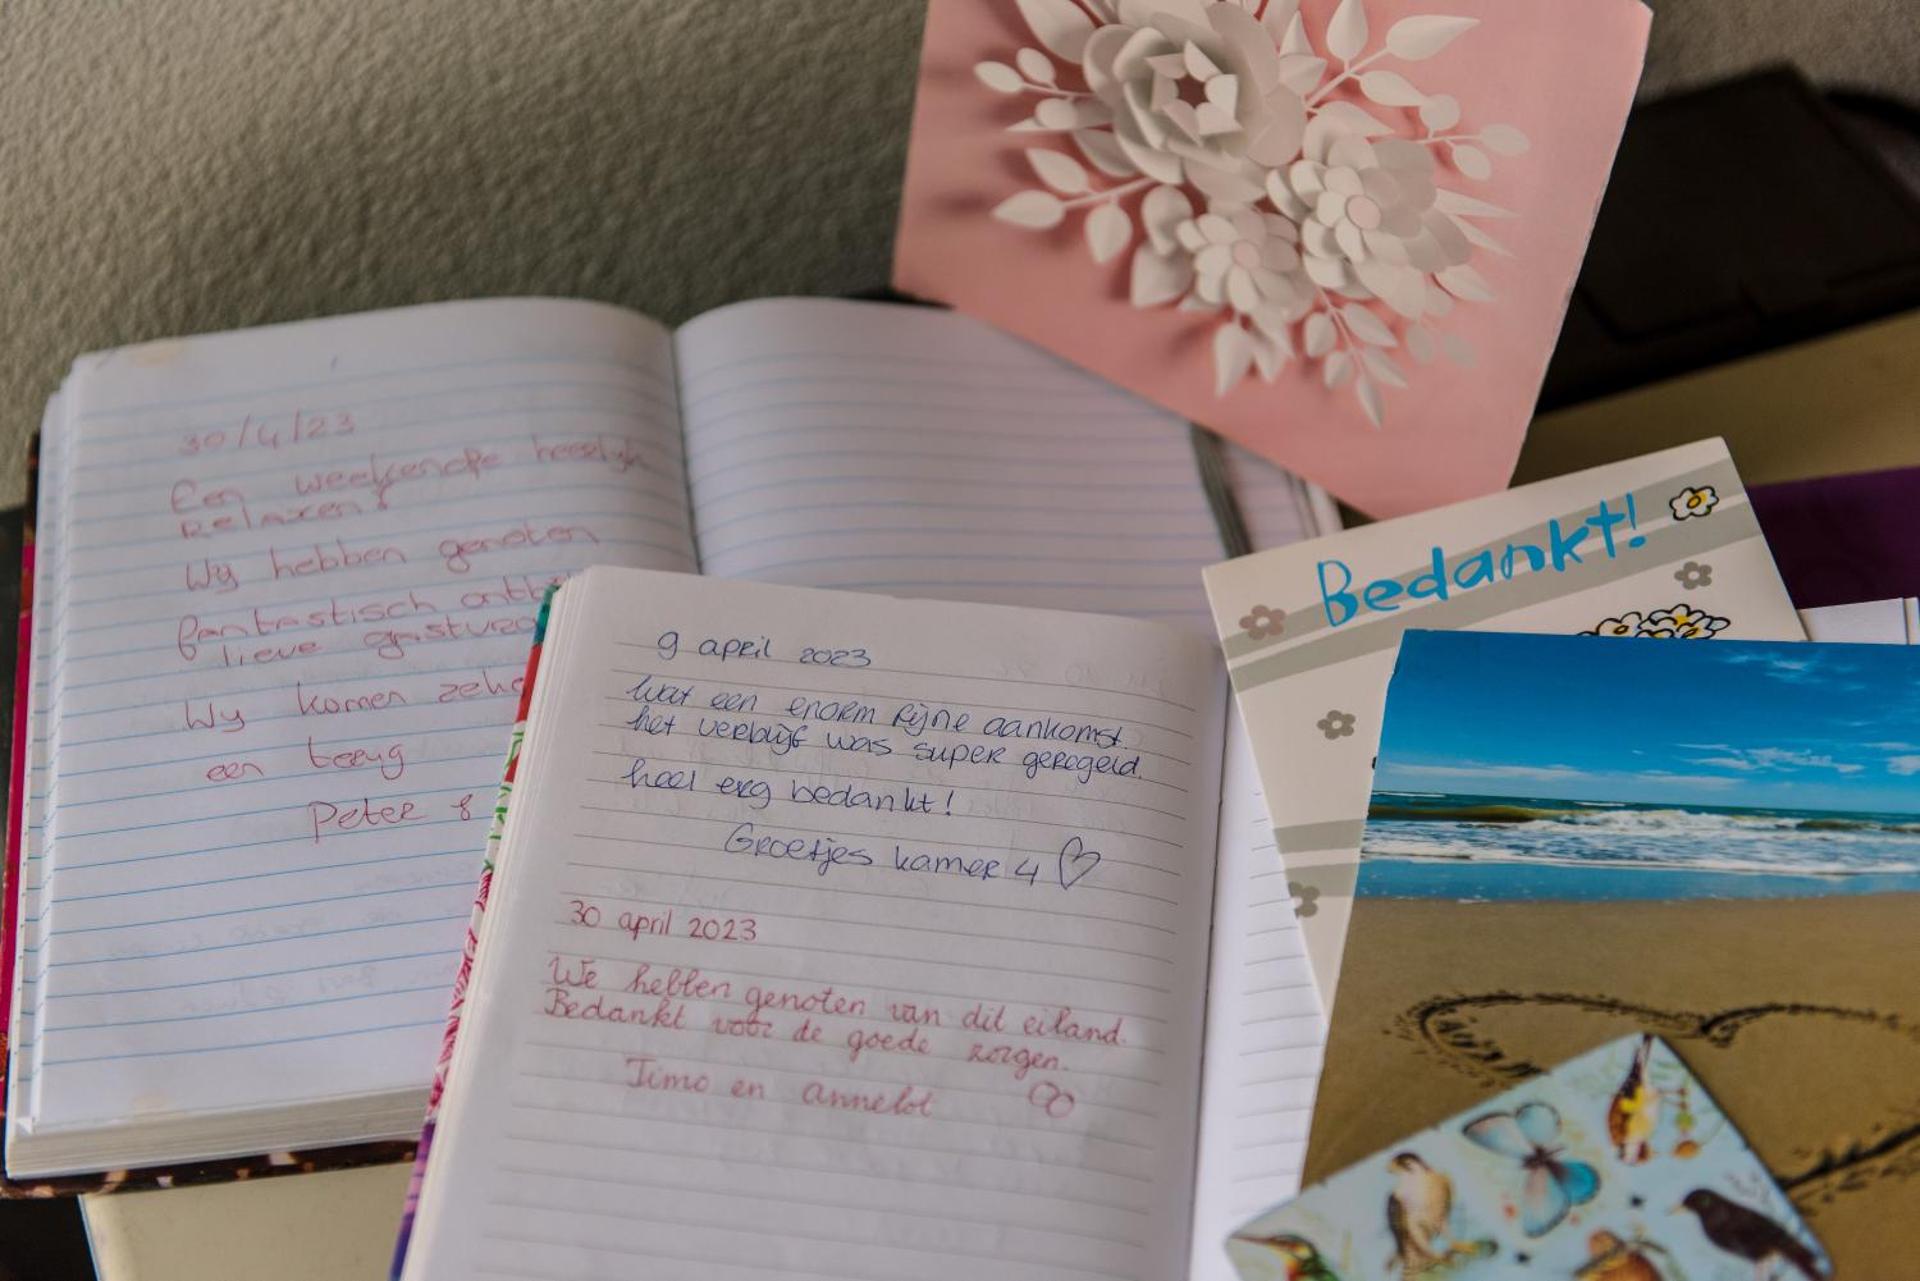 30/4/23
Een weekendje heerlijk
Relaxen!
Wij hebben genoten
fantastisch ontb
lieve gastvro
Wij komen zeke
een terug
Peter &
9 april 2023
Wat een enorm fijne aankomst.
het verblijf was super geregeld.
heel erg bedankt!
Groetjes kamer 4
30 april 2023
We hebben genoten van dit eiland.
Bedankt voor de goede zorgen.
Timo en Annelot
Bedankt!